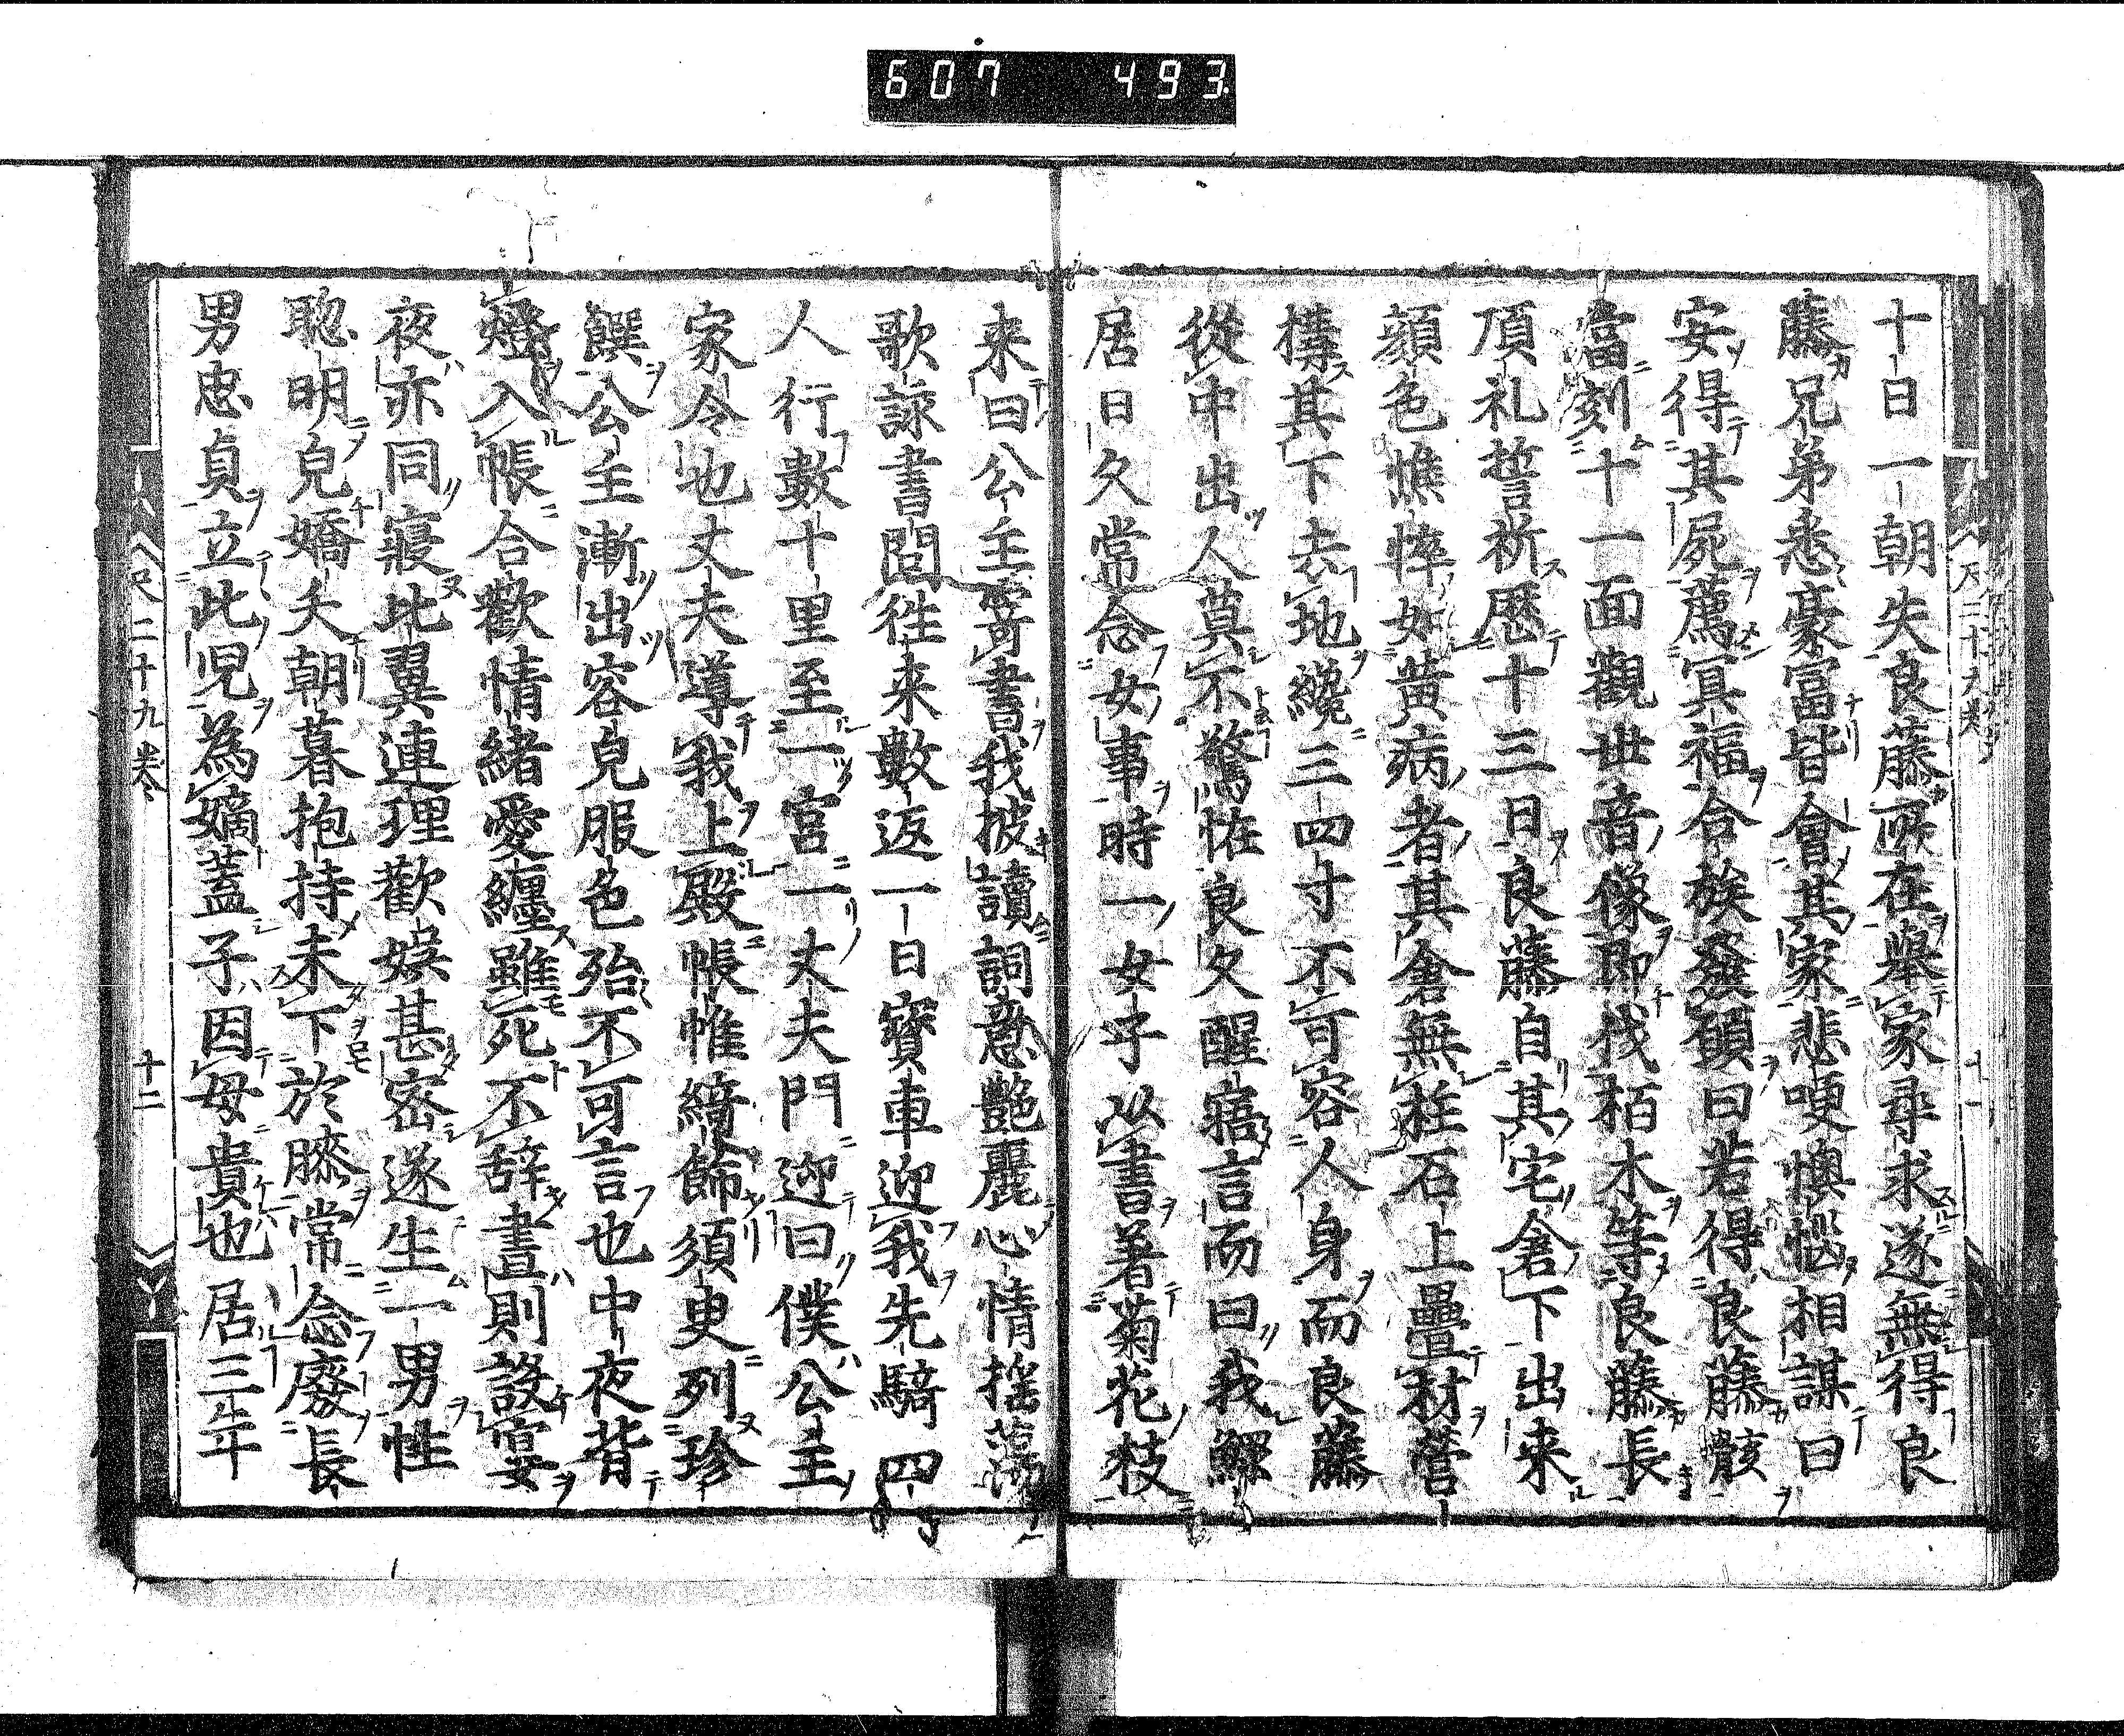 607 493
十日一朝失良藤所在舉家尋求遂無得良
藤兄弟悉豪富皆會其家悲哽懊惱相謀曰
安得其屍薦冥福合族發願曰若得良藤骸
當刻十一面觀世音像即伐栢木等良藤長
頂礼誓祈歷十三日良藤自其宅倉下出来
顔色憔悴如黄病者其倉無柱石上疊材營
構其下去地纔三四寸不可容人身而良藤
從中出人莫不驚恠良久醒寤言而曰我鰥
居日久常念女事時一女子以書著菊花枝
来曰公主寄書我披讀詞意艶麗心情揺蕩
歌詠書問往来數返一日寳車迎我先騎四
人行數十里至一宮一丈夫門迎曰僕公主
家令也丈夫導我上殿帳帷綺飾須臾列珍
饌公主漸出容皃服色殆不可言也中夜背
燈入帳合歡情緒愛纏雖死不辞晝則設宴
夜亦同寢比翼連理歡娯甚密遂生一男性
聡明皃嬌夭朝暮抱持未下於膝常念廢長
男忠貞立此児為嫡蓋子因母貴也居三年
二十九巻
十二